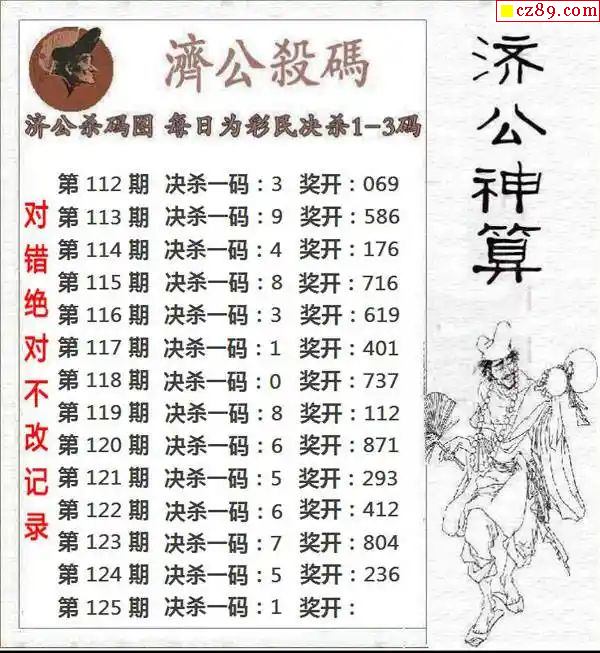 cz89.com
濟公殺碼
济公杀码图 每日为彩民决杀1-3码
第 112 期 决杀一码：3 奖开：069
第 113 期 决杀一码：9 奖开：586
第 114 期 决杀一码：4 奖开：176
第 115 期 决杀一码：8 奖开：716
第 116 期 决杀一码：3 奖开：619
第 117 期 决杀一码：1 奖开：401
第 118 期 决杀一码：0 奖开：737
第 119 期 决杀一码：8 奖开：112
第 120 期 决杀一码：6 奖开：871
第 121 期 决杀一码：5 奖开：293
第 122 期 决杀一码：6 奖开：412
第 123 期 决杀一码：7 奖开：804
第 124 期 决杀一码：5 奖开：236
第 125 期 决杀一码：1 奖开：
对错绝对不改记录
济公神算